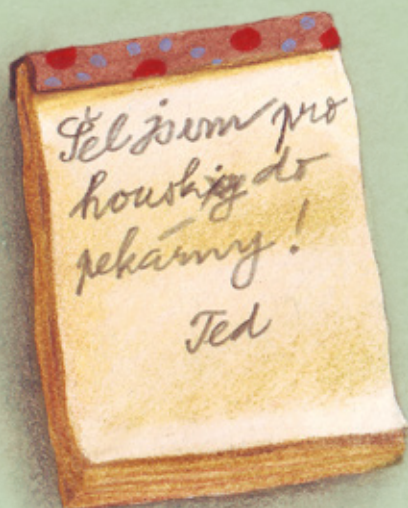 Šel jsem pro
housky do
pekárny!
Ted